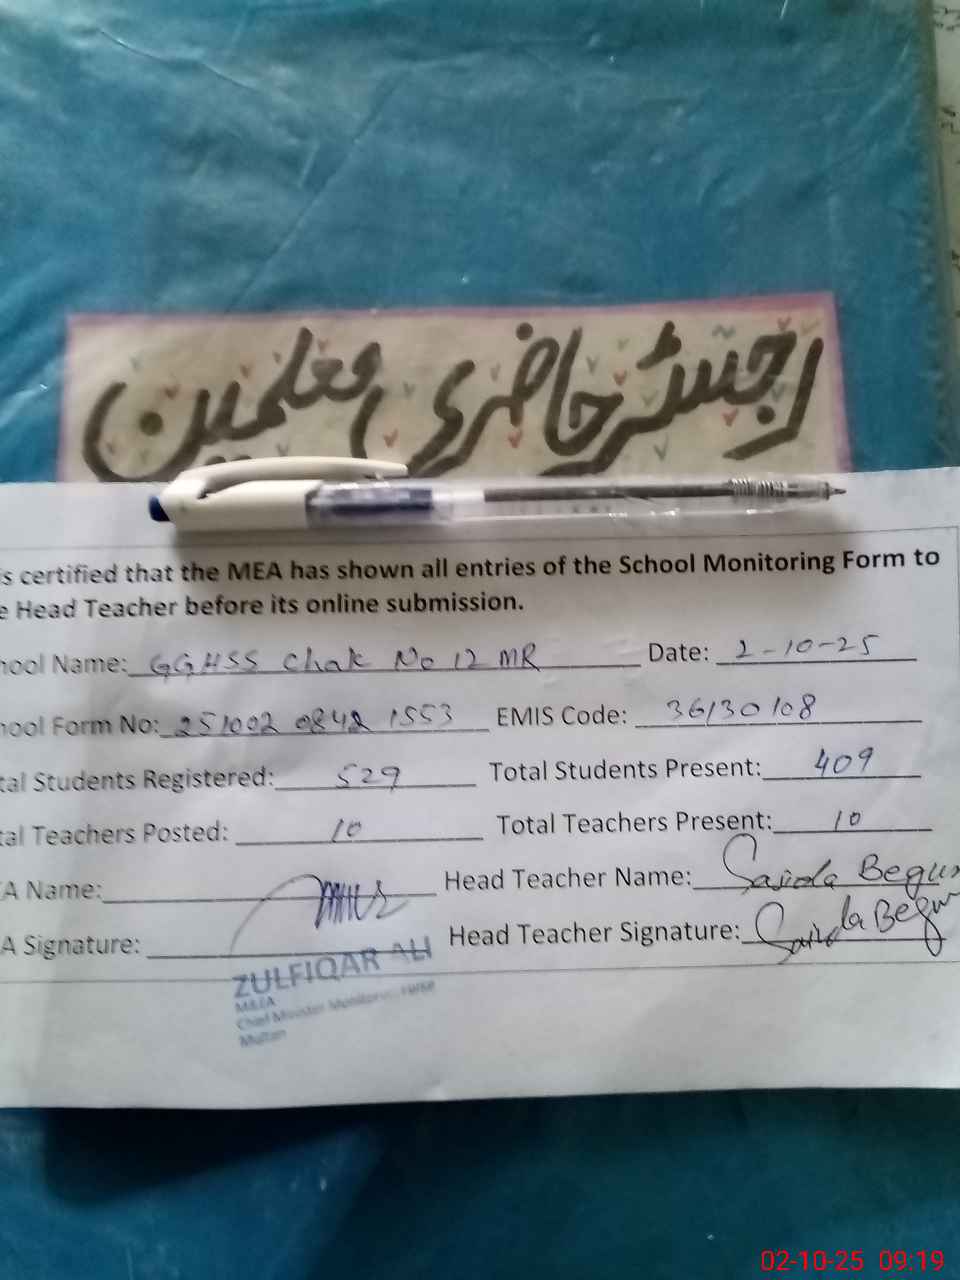 رجسٹر حاضری معلمین
s certified that the MEA has shown all entries of the School Monitoring Form to
e Head Teacher before its online submission.
hool Name: GGHSS Chak No 12 MR Date: 2-10-25
hool Form No: 251002 0842 1553 EMIS Code: 36130108
tal Students Registered: 529 Total Students Present: 409
tal Teachers Posted: 10 Total Teachers Present: 10
A Name: Head Teacher Name: Saida Begum
A Signature: Head Teacher Signature: Saida Begum
ZULFIQAR ALI
MEA
Chief Minister Monitoring Force
Multan
02-10-25 09:19